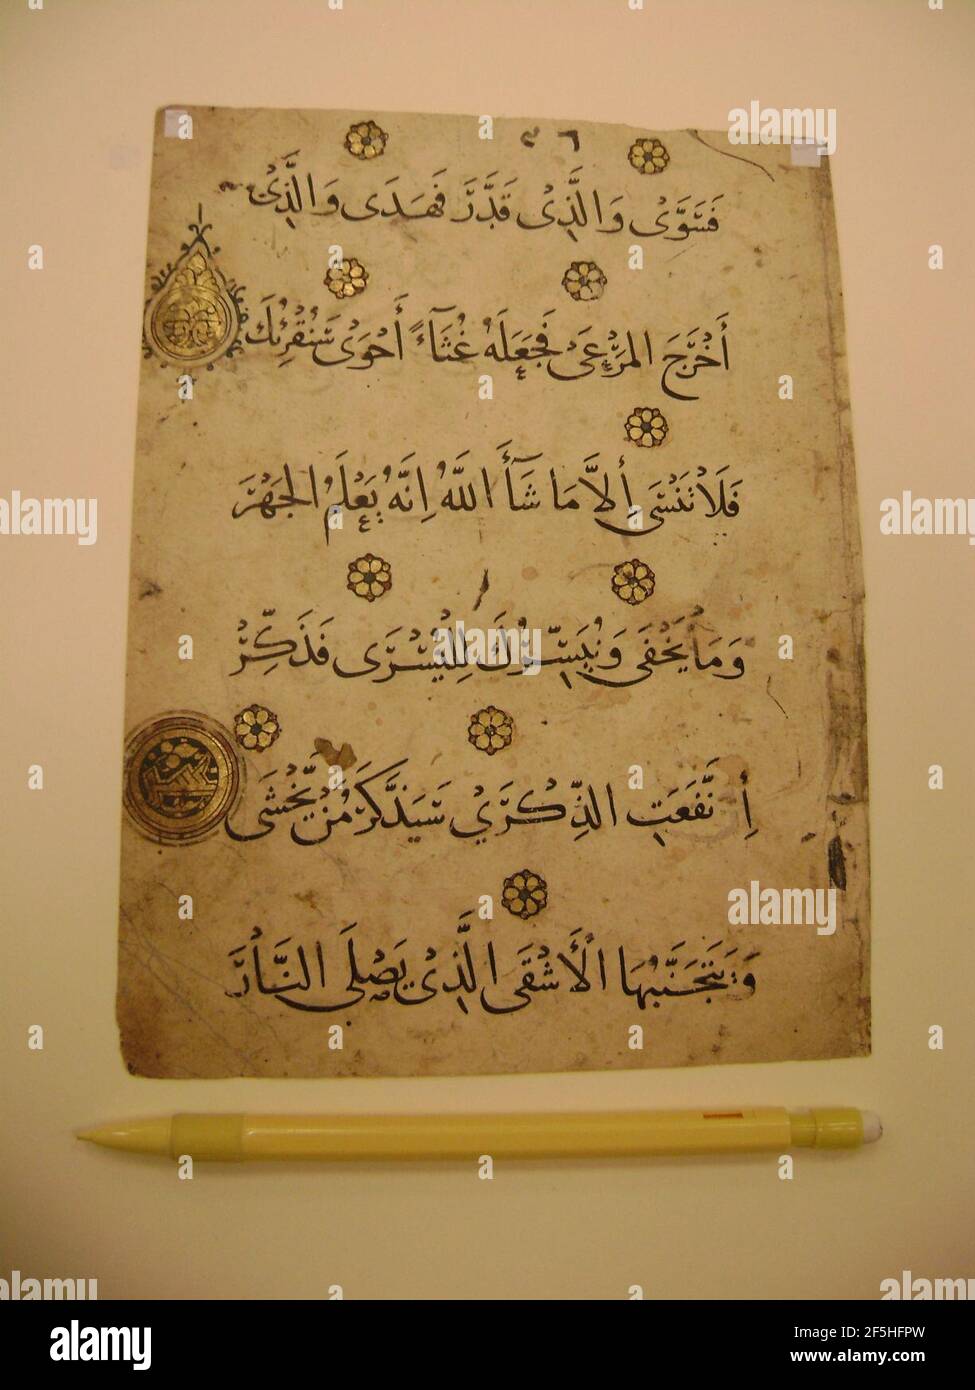 ٥٦
فَسَوَّىٰ وَالَّذِىْ قَدَّرَ فَهَدَى وَالَّذِىْ
أَخْرَجَ المَرْعَىٰ فَجَعَلَهُ غُثَآءً أَحْوَىٰ سَنُقْرِئُكَ
فَلَا تَنْسَى إِلَّا مَا شَآءَ اللَّهُ اِنَّهُ يَعْلَمُ الجَهْرَ
وَمَا يَخْفَى وَنُيَسِّرُكَ لِلْيُسْرَى فَذَكِّرْ
إِنْ نَّفَعَتِ الذِّكْرَىْ سَيَذَّكَّرُ مَنْ يَّخْشَى
وَيَتَجَنَّبُهَا الْأَشْقَى الَّذِىْ يَصْلَى النَّارَ
alamy
alamy
Image ID: 2F5HFPW
www.alamy.com